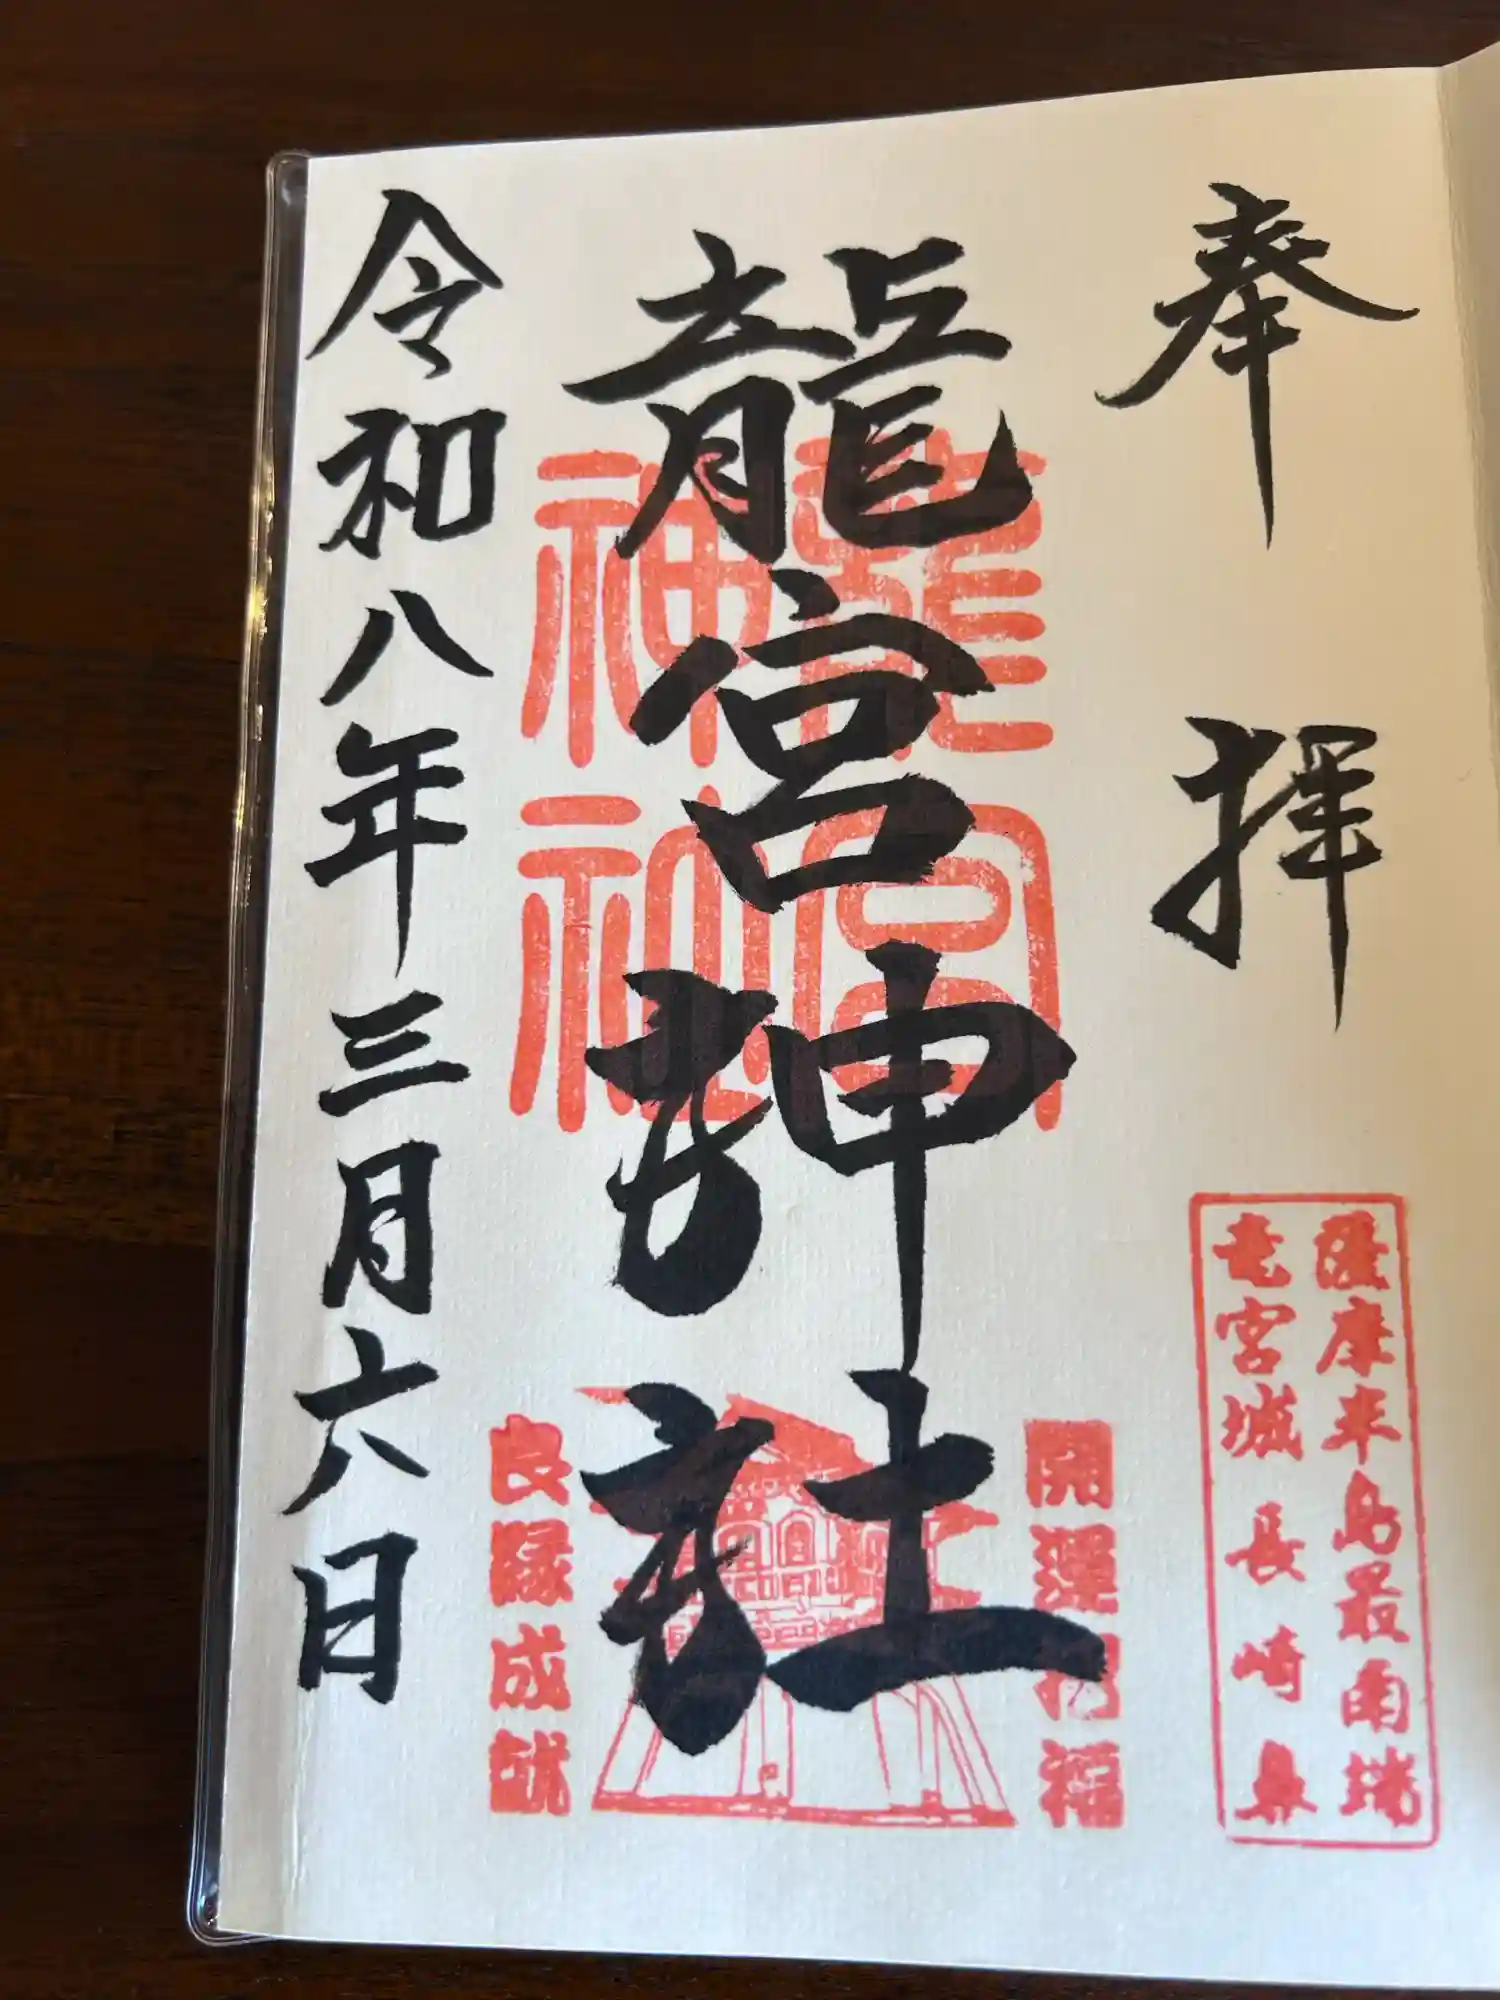 奉拝
薩摩半島最南端
竜宮城長崎鼻
龍宮神社
龍宮
神社
開運招福
良縁成就
令和八年三月六日